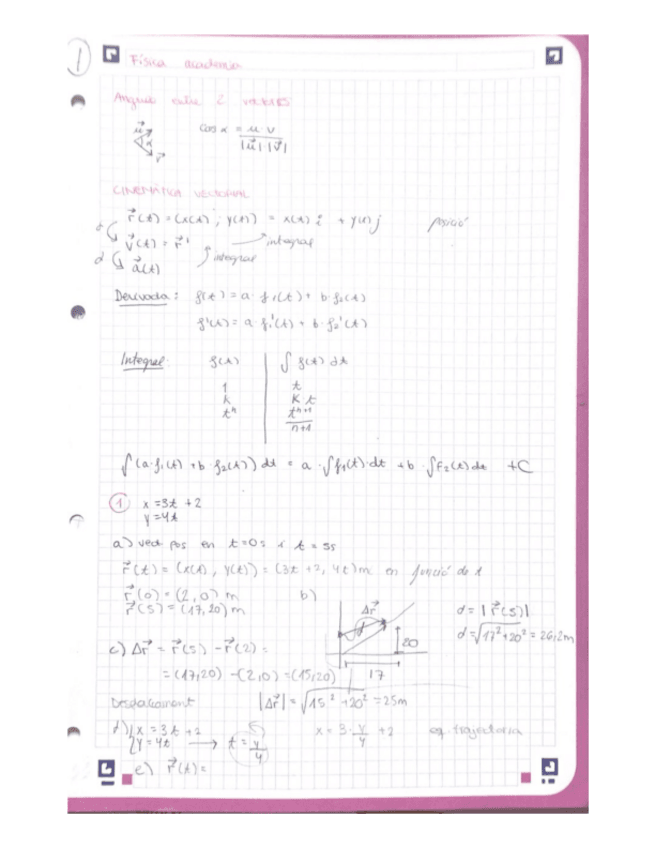 1
Física academia
Angle entre 2 vectors
cos α = u·v / |u⃗|·|v⃗|
u⃗
α
v⃗
CINEMÀTICA VECTORIAL
r⃗(t) = (x(t), y(t)) = x(t) i + y(t) j posició
d
v⃗(t) = r⃗' integral
d
a⃗(t) integral
Derivada: f(t) = a·f₁(t) + b·f₂(t)
f'(t) = a·f₁'(t) + b·f₂'(t)
Integral: f(t) ∫ f(t) dt
1 t
k k t
tⁿ tⁿ⁺¹/n+1
∫(a·f₁(t) + b·f₂(t)) dt = a·∫f₁(t)·dt + b·∫f₂(t)dt +C
1 x = 3t + 2
y = 4t
a) vect pos en t=0s i t = 5s
r⃗(t) = (x(t), y(t)) = (3t+2, 4t) m en funció de t
r⃗(0) = (2,0) m
r⃗(5) = (17,20) m
b)
Δr⃗
d
20
17
d = |r⃗(5)|
d = √17²+20² = 26,2m
c) Δr⃗ = r⃗(5) - r⃗(2) =
= (17,20) - (2,0) = (15,20)
Desplaçament |Δr⃗| = √15² + 20² = 25m
d) x = 3t + 2 x = 3·y/4 + 2 eq. trajectoria
y = 4t → t = y/4
e) r⃗(t) =